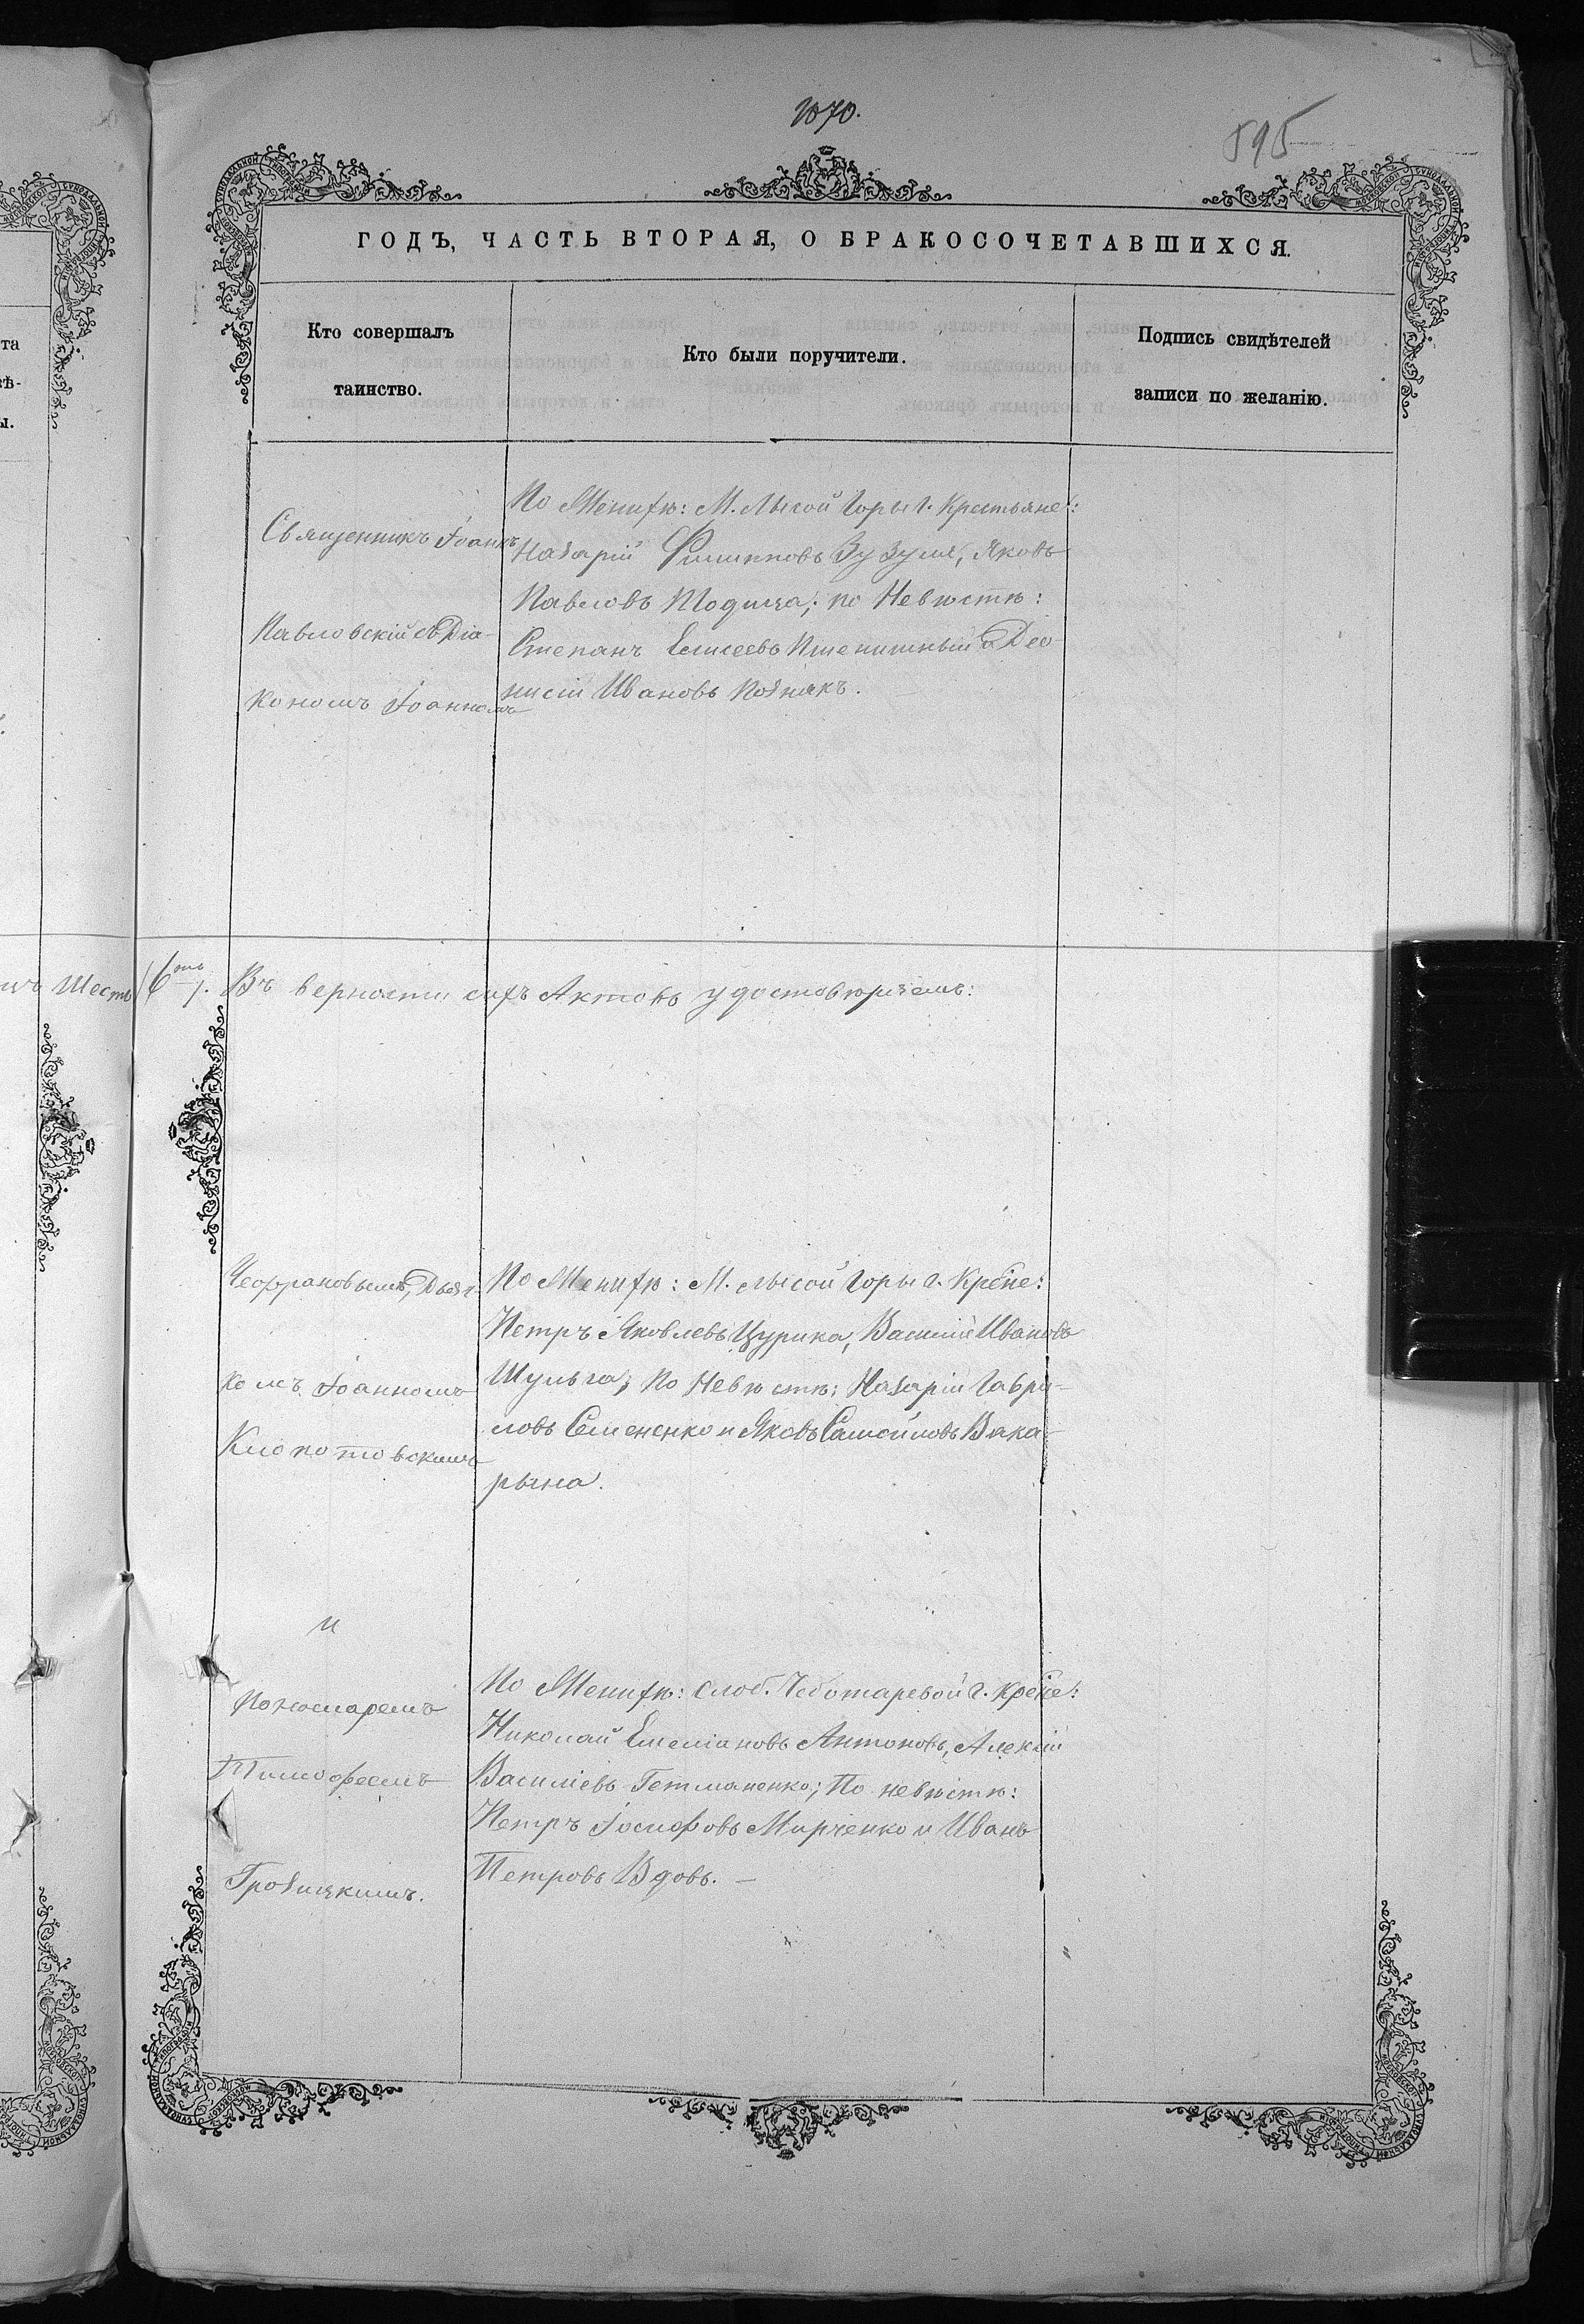 1870.
595
ГОДЪ, ЧАСТЬ ВТОРАЯ, О БРАКОСОЧЕТАВШИХСЯ.
Кто совершалъ
таинство.
Кто были поручители.
Подпись свидѣтелей
записи по желанію.
та
ѣ-
ы.
Священникъ Іоаннъ
Павловскій съ Діа-
кономъ Іоанномъ
По Женихѣ: М. Лысой Горы г. Крестьяне:
Назарій Филипповъ Зузуля, Яковъ
Павловъ Модица; по Невѣстѣ:
Степанъ Елисеевъ Пшенишный и Део-
нисій Ивановъ Познякъ.
Шесть (6ть). Въ верности сихъ Актовъ удостовѣряемъ:
Чефрановымъ, Дьяч-
комъ Іоанномъ
Клопотовскимъ
По Женихѣ: М. Лысой Горы г. Кр-не:
Петръ Яковлевъ Цурика, Василій Ивановъ
Шульга; По Невѣстѣ: Назарій Гаври-
ловъ Семененко и Яковъ Самойловъ Вака-
рына.
и
Пономаремъ
Тимофеемъ
Грозицкимъ.
По Женихѣ: Слоб. Чеботаревой г. Кр-не:
Николай Емеліановъ Антоновъ, Алексій
Василіевъ Гетманенко; По невѣстѣ:
Петръ Іосифовъ Мирченко и Иванъ
Петровъ Вдовъ. —